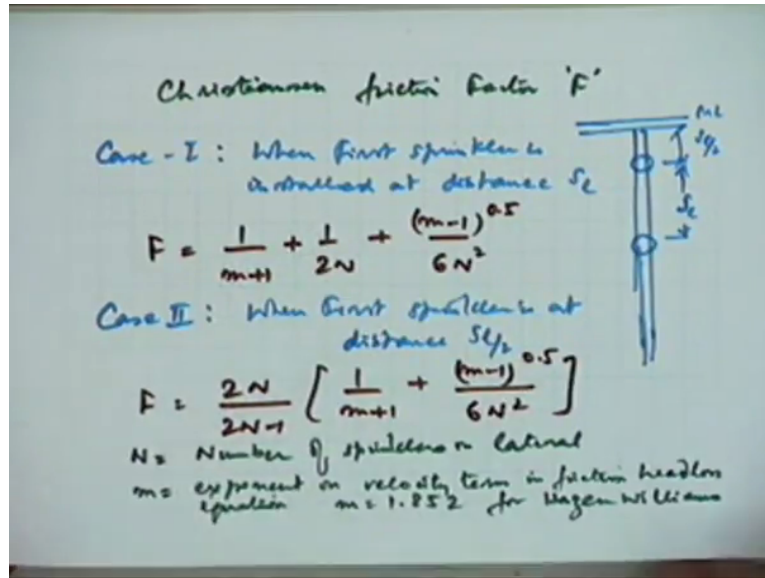 Christiansen friction Factor 'F'
Case - I : When first sprinkler is
installed at distance Sl
F = 1/(m+1) + 1/2N + (m-1)^0.5/6N²
Case II : When first sprinkler is at
distance Sl/2
F = 2N/(2N-1) [ 1/(m+1) + (m-1)^0.5/6N² ]
N = Number of sprinklers on lateral
m = exponent on velocity term in friction headloss
equation m = 1.852 for Hazen Williams
ML
Sl/2
Sl